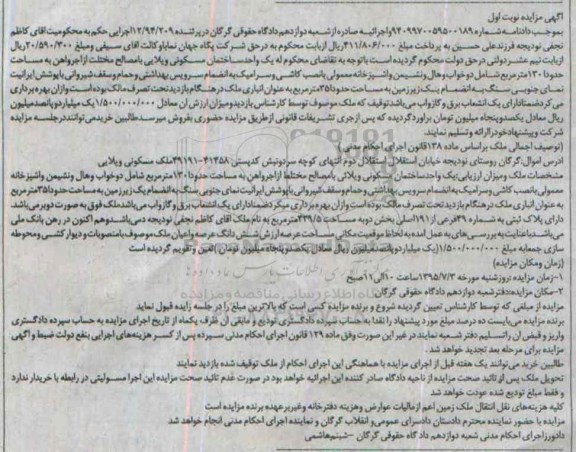 آگهی مزایده نوبت اول
بموجب دادنامه شماره ۹۴۰۹۹۷۰۰۵۹۵۰۰۱۸۹ واجرائیه صادره از شعبه دوازدهم دادگاه حقوقی گرگان در پرونده ۱۲/۹۴/۲۰۹ اجرایی حکم به محکومیت آقای کاظم
نجفی نودیجه فرزند علی حسین به پرداخت مبلغ ۴۱۱/۸۰۶/۰۰۰ ریال از بابت محکوم به در حق شرکت پگاه جهان نما با وکالت آقای سیفی ومبلغ ۲۰/۵۹۰/۳۰۰ ریال
از بابت نیم عشر دولتی در حق دولت محکوم گردیده است باتوجه به تقاضای محکوم له یک واحد ساختمان مسکونی ویلایی با مصالح مختلط از آجر واهن به مساحت
حدودا ۱۳۰ متر مربع شامل دو خواب وهال ونشیمن واشپزخانه معمولی با نصب کاشی وسرامیک به انضمام سرویس بهداشتی وحمام وسقف شیروانی با پوشش ایرانیت
نمای جنوبی سنگ به انضمام یک زیر زمین به مساحت حدودا ۳۵ متر مربع به عنوان انباری ملک در هنگام بازدید تحت تصرف مالک بوده است واز ان بهره برداری
می گردد ضمنا دارای یک انشعاب برق و گاز واب می باشد توقیف که ملک موصوف توسط کارشناس بازدید ومیزان ارزش ان معادل ۱/۵۰۰/۰۰۰/۰۰۰ یک میلیارد و پانصد میلیون
ریال معادل یکصد و پنجاه میلیون تومان برآورد گردیده که پس از جری تشریفات قانونی از طریق مزایده حضوری بفروش میرسد طالبین خرید می توانند در جلسه مزایده
شرکت و پیشنهاد خود را ارائه و تسلیم نمایند.
(توصیف اجمالی ملک براساس ماده ۱۳۸ قانون اجرای احکام مدنی)
ادرس اموال: گرگان روستای نودیجه خیابان استقلال استقلال دوم انتهای کوچه سردونبش کدپستی ۴۱۴۵۸-۴۹۱۹۱ ملک مسکونی ویلایی
مشخصات ملک ومیزان ارزیابی: یک واحد ساختمان مسکونی ویلائی با مصالح مختلط از آجر واهن به مساحت حدودا ۱۳۰ متر مربع شامل دو خواب وهال و نشیمن واشپزخانه
معمولی با نصب کاشی وسرامیک به انضمام سرویس بهداشتی وحمام وسقف شیروانی با پوشش ایرانیت نمای جنوبی سنگ به انضمام یک زیر زمین به مساحت حدودا ۳۵ متر مربع
به عنوان انباری ملک در هنگام بازدید تحت تصرف مالک بوده است و ازان بهره برداری میگردد ضمنا دارای یک انشعاب برق و گاز واب می باشد ملک فوق به صورت دوبر می باشد.
دارای پلاک ثبتی به شماره ۳۹ فرعی از ۱۹۱ اصلی بخش دو به مساحت ۳۳۹/۵ متر مربع به نام ملک آقای کاظم نجفی نودیجه می باشد و هم اکنون در رهن بانک ملی
می باشد با عنایت به بررسی های به عمل امده به لحاظ موقعیت مکانی مساحت عرصه ارزش شش دانگ عرصه واعیان ملک موصوف با منصوبات و دیوار کشی ومحوطه
سازی جمعا به مبلغ ۱/۵۰۰/۰۰۰/۰۰۰ (یک میلیارد وپانصد میلیون ریال معادل یکصد و پنجاه میلیون تومان) تعیین وتقویم گردیده است
(زمان ومکان مزایده)
۱-زمان مزایده: روز شنبه مورخه ۱۳۹۵/۷/۳ ساعت ۱۰ الی ۱۱ صبح
۲-مکان مزایده: دفتر شعبه دوازدهم دادگاه حقوقی گرگان
مزایده از مبلغی که توسط کارشناس تعیین گردیده شروع و برنده مزایده کسی است که بالاترین مبلغ را در جلسه مزایده قبول نماید
برنده مزایده می بایست ده درصد مبلغ مورد پیشنهاد را نقدا به حساب سپرده دادگستری تودیع و مابقی آن ظرف یکماه از تاریخ اجرای مزایده به حساب سپرده دادگستری
واریز و قبض ان راتسلیم دفتر شعبه نمایند در غیر این صورت وفق ماده ۱۲۹ قانون اجرای احکام مدنی سپرده پس از کسر هزینه های اجرایی بنفع دولت ضبط و آگهی
مزایده برای مرحله بعد تجدید خواهد شد.
طالبین خرید می توانند یک هفته قبل از اجرای مزایده با هماهنگی این اجرای احکام از ملک توقیف شده بازدید نمایند
تحویل ملک پس از تائید صحت مزایده از ناحیه دادگاه صادر کننده این اجرائیه خواهد بود در صورت عدم تائید صحت مزایده این اجرا مسولیتی در رابطه با خریدار ندارد
و فقط مبلغ تودیع شده عودت خواهد شد
کلیه هزینه های نقل انتقال ملک زمین اعم از مالیات عوارض وهزینه دفتر خانه وغیر بر عهده برنده مزایده است
مزایده با حضور نماینده محترم دادستان دادسرای عمومی و انقلاب گرگان و نماینده اجرای احکام مدنی انجام خواهد شد
دادورز اجرای احکام مدنی شعبه دوازدهم دادگاه حقوقی گرگان - شبنم هاشمی